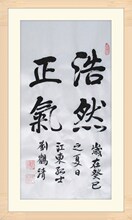 浩然
正氣
歲在癸巳
之夏日
江東孤士
劉鶴清